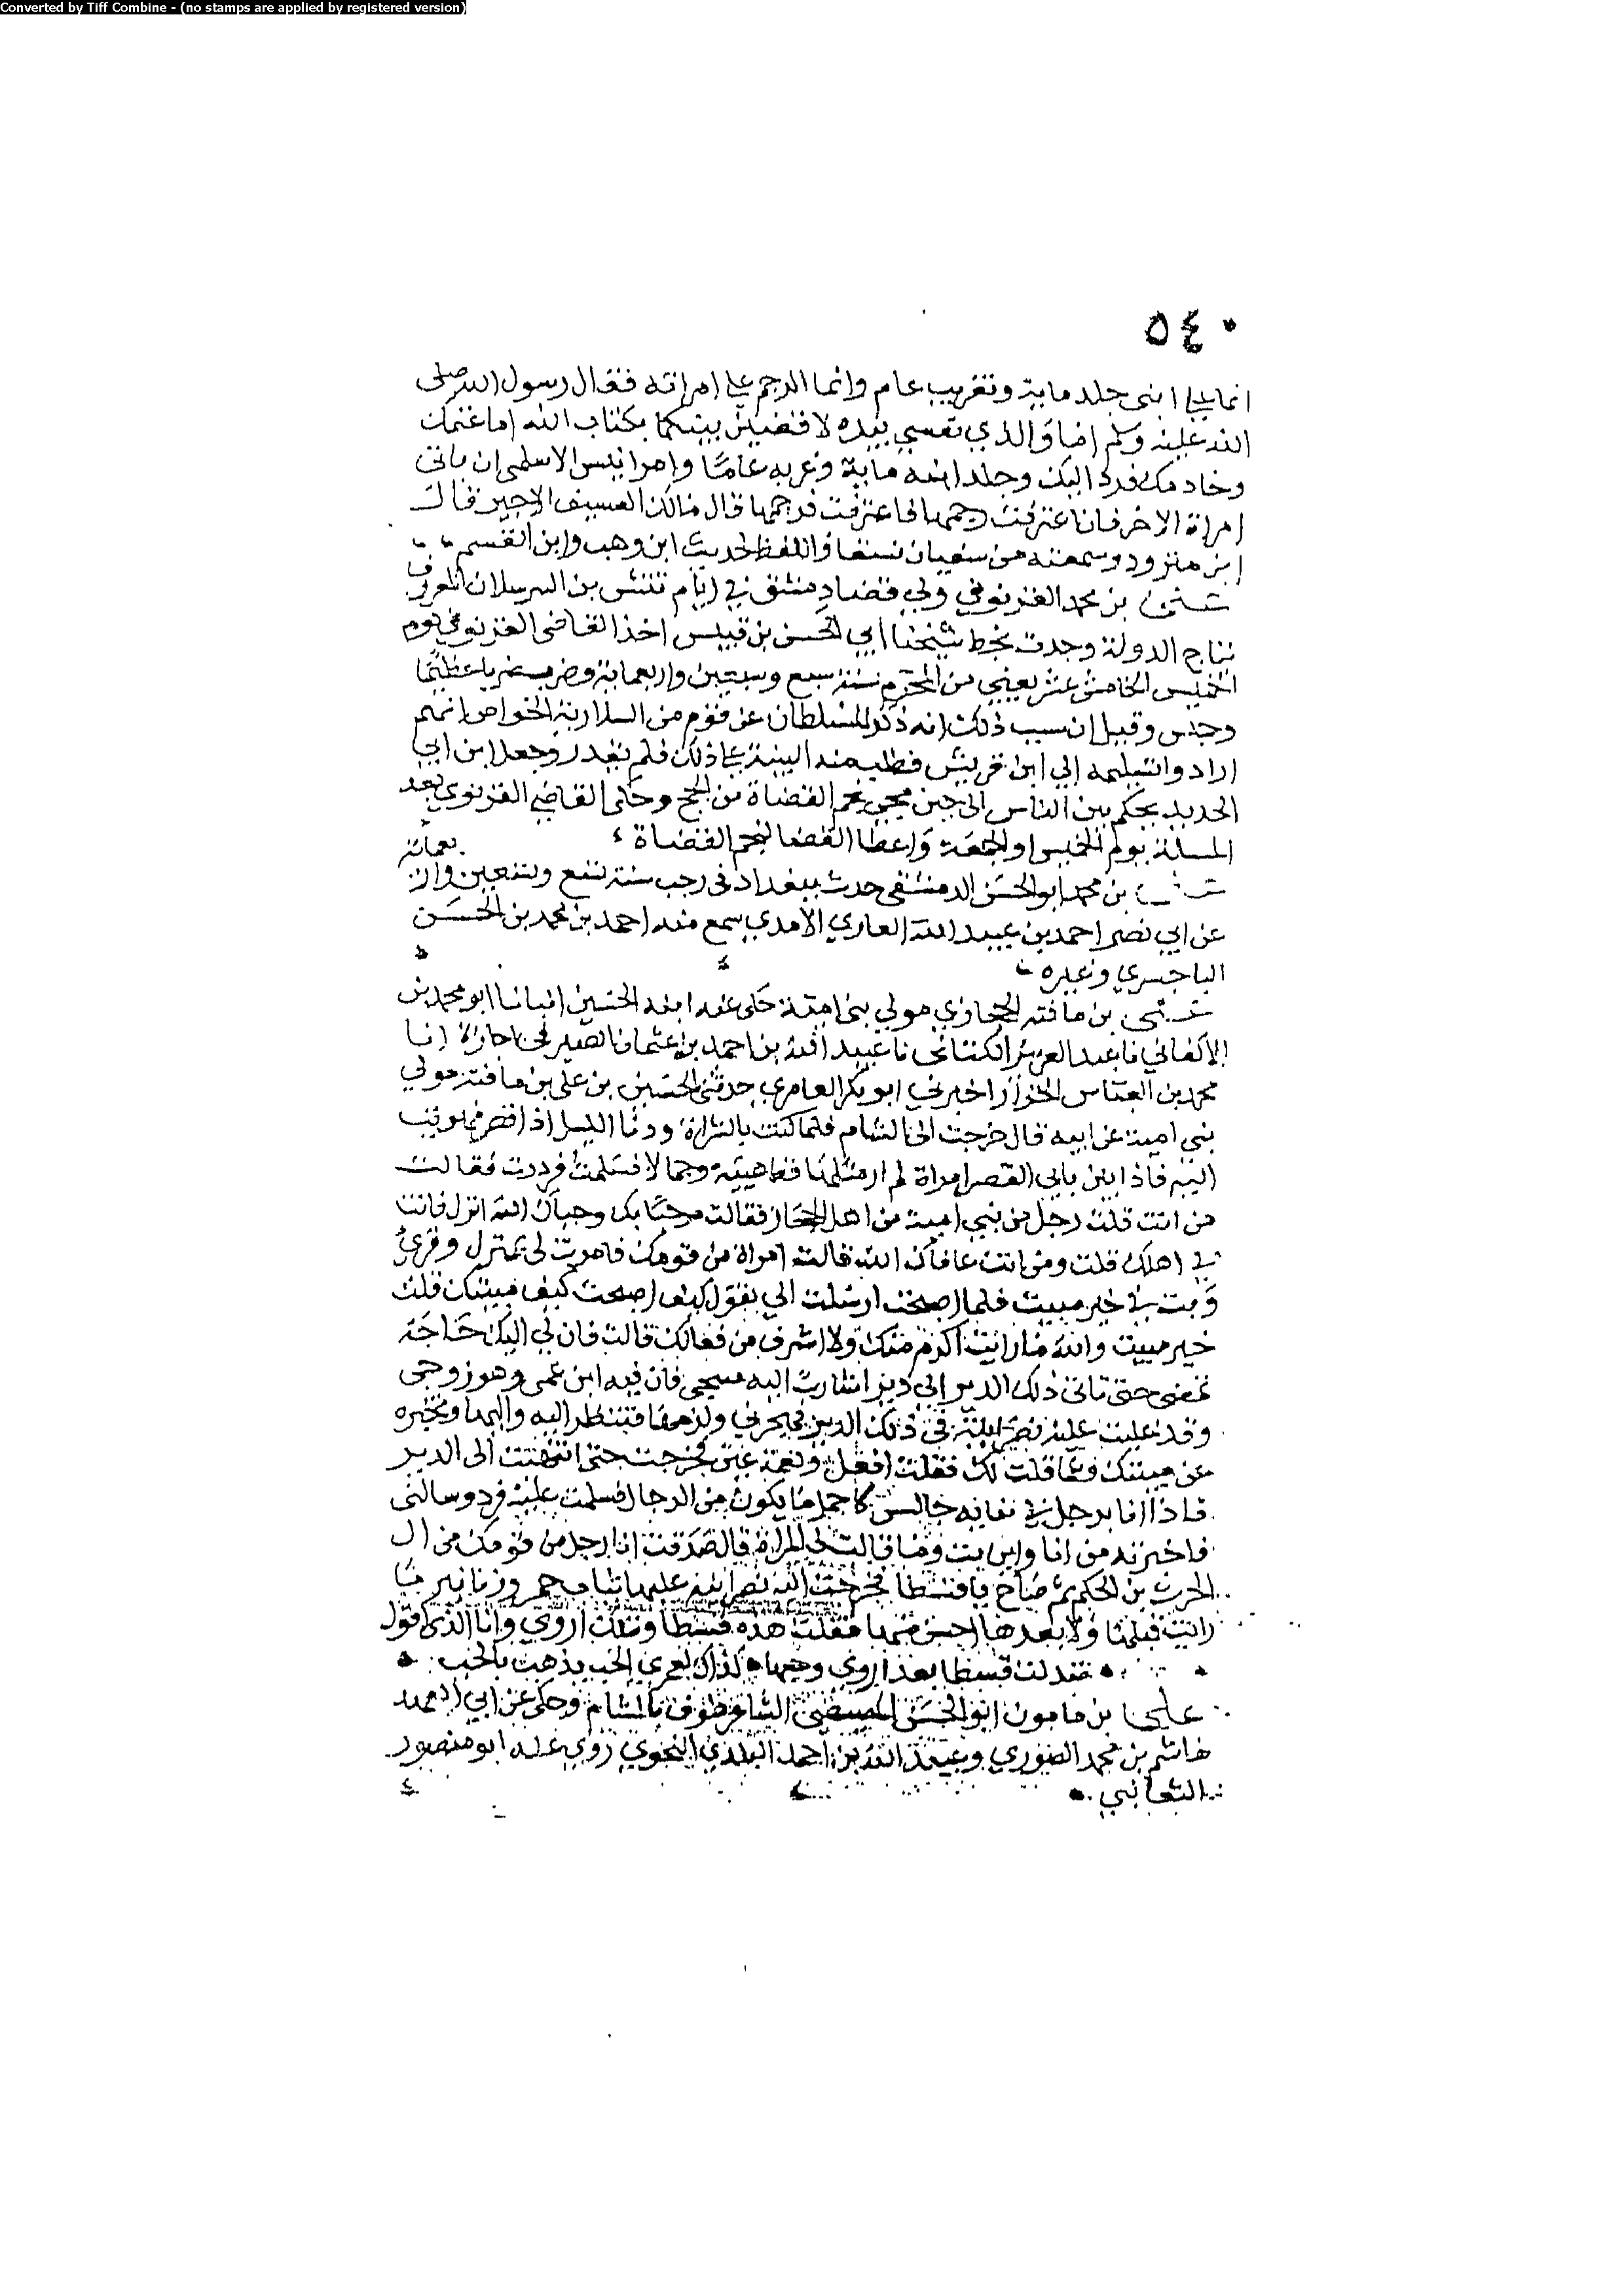 Converted by Tiff Combine - (no stamps are applied by registered version)
٥٤٠
انما على ابنى جلد ماية وتغريب عام وانما الرجم على امراته فقال رسول الله صلى
الله عليه وسلم اما والذي نفسي بيده لاقضين بينكما بكتاب الله اما غنمك
وخادمك فرد اليك وجلد ابنه ماية وغربه عاما وامر انيس الاسلمى ان ياتى
امراة الاخر فان اعترفت رجمها فاعترفت فرجمها قال مالك العسيف الاجير قال
ابن منرود وسمعته من سفيان واللفظ لحديث ابن وهب وابن القسم
بن محمد الغزنوي ولي قضا دمشق في ايام تتش بن البرسلان المعروف
بتاج الدولة وجدت بخط شيخنا ابي الحسن بن قبيس اخذ القاضى الغزنوي يوم
الخميس الخامس عشر يعني من المحرم سنة سبع وسبعين واربعماية وضرب ضربا عظيما
وحبس وقيل ان سبب ذلك انه ذكر للسلطان عن قوم من السلارية الخواص انهم
ارادوا تسليمه الي ابن قريش فطلب منه البينة على ذلك فلم يقدر وجعل ابن ابي
الحديد يحكم بين الناس الى حين مجي نجم القضاة من الحج وخلى القاضي الغزنوي بعد
المسلة يوم الخميس والجمعة واعطا القضا لنجم القضاة
بن محمد ابو الحسن الدمشقى حدث ببغداد فى رجب سنة تسع وتسعين واربعمائة
عن ابي نصر احمد بن عبيد الله الامدي سمع منه احمد بن محمد بن الحسن
الباجسري وغيره
بن مافنه الحجازي مولي بني امية حكى عنه ابنه الحسين انبانا ابو محمد بن
الاكفاني نا عبد العزيز الكتانى نا عبيد الله بن احمد بن عثمان الصيرفى اجازة انا
محمد بن العباس الخزاز اخبرني ابو بكر العامري حدثنى الحسين بن على بن مافنة مولي
بني امية عن ابيه قال خرجت الى الشام فلما كنت بالشراة ودنا الليل اذا قصر فهويت
اليه فاذا بين بابي القصر امراة لم ار مثلها قط هيئة وجمالا فسلمت فردت فقالت
من انت قلت رجل من بني امية من اهل الحجاز فقالت مرحبا بك وحياك الله انزل فانت
في اهلك قلت ومن انت عافاك الله قالت امراة من قومك فامرت لى بمنزل وقرى
وبت في خير مبيت فلما اصبحت ارسلت الي تقول كيف اصبحت كيف مبيتك قلت
خير مبيت والله ما رايت اكرم منك ولا اشرف من فعالك قالت فان لي اليك حاجة
تمضى حتى تاتى ذلك الدير الي دير اشارت اليه منتحى فان فيه ابن عمى وهو زوجى
وقد غلبت عليه نصرانية فى ذلك الدير فهجرني ولزمها فتنظر اليه واليها وتخبره
عن مبيتك وعما قلت لك فقلت افعل ونعمة عين فخرجت حتى انتهيت الى الدير
فاذا انا برجل في فنايه جالس كاجمل ما يكون من الرجال فسلمت عليه فرد وسالنى
فاخبرته من انا واين بت وما قالت لي المراة قال صدقت انا رجل من قومك من ال
الحرث بن الحكم ثم صاح يا قسطا فخرجت اليه نصرانية عليها ثياب حمر وزنانير ما
رايت قبلها ولا بعدها احسن منها فقلت هذه قسطا وتلك اروي وانا الذي اقول
تبدلت قسطا بعد اروي وحبها كذاك لعمري الحب يذهب بالحب
علي بن مامون ابو الحسن المصيصى الشاعر طوف بالشام وحكى عن ابي
هاشم بن محمد الصوري وعبيد الله بن احمد البلدي النحوي روي عنه ابو منصور
الثعالبي